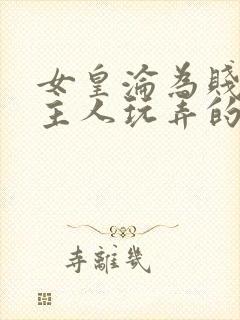 女皇淪為賤
主人玩弄的
寺離幾